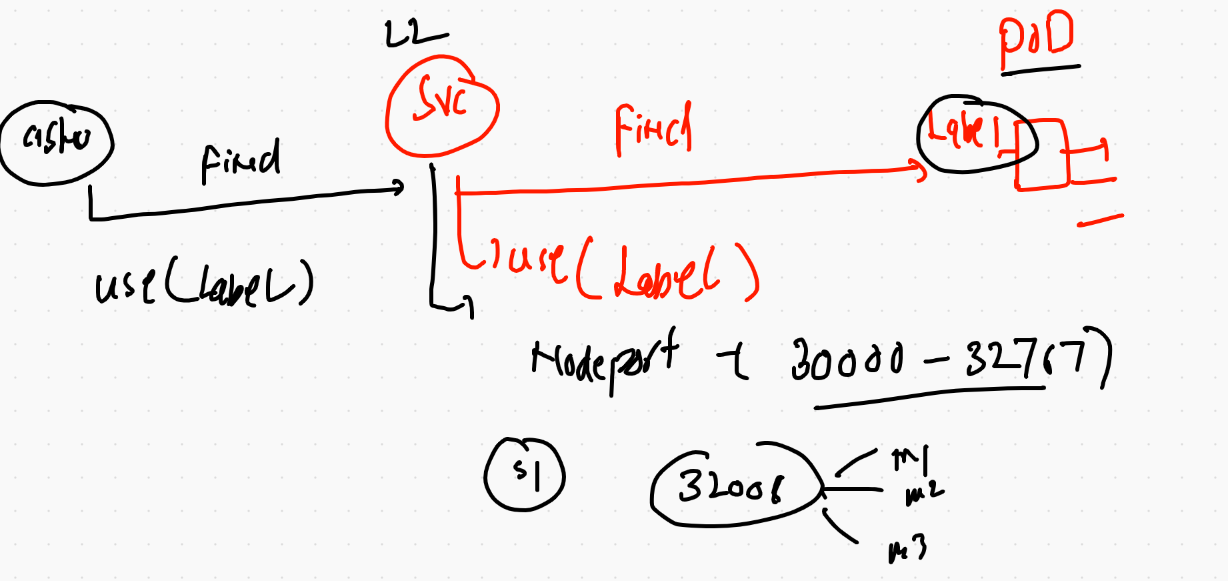 L2
POD
Svc
Label
Find
Find
use(Label)
use(Label)
Nodeport - ( 30000 - 32767)
s1
32006
m1
m2
m3